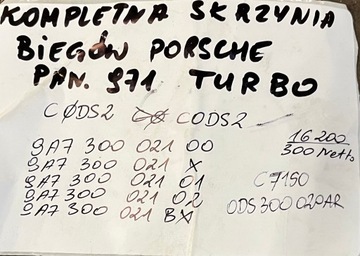 KOMPLETNA SKRZYNIA
BIEGÓW PORSCHE
PAN. 971 TURBO
CØDS2 CODS2
9A7 300 021 00
9A7 300 021 X
9A7 300 021 01
9A7 300 021 02
9A7 300 021 BX
16 200
300 Netto
C7190
0DS300020AR